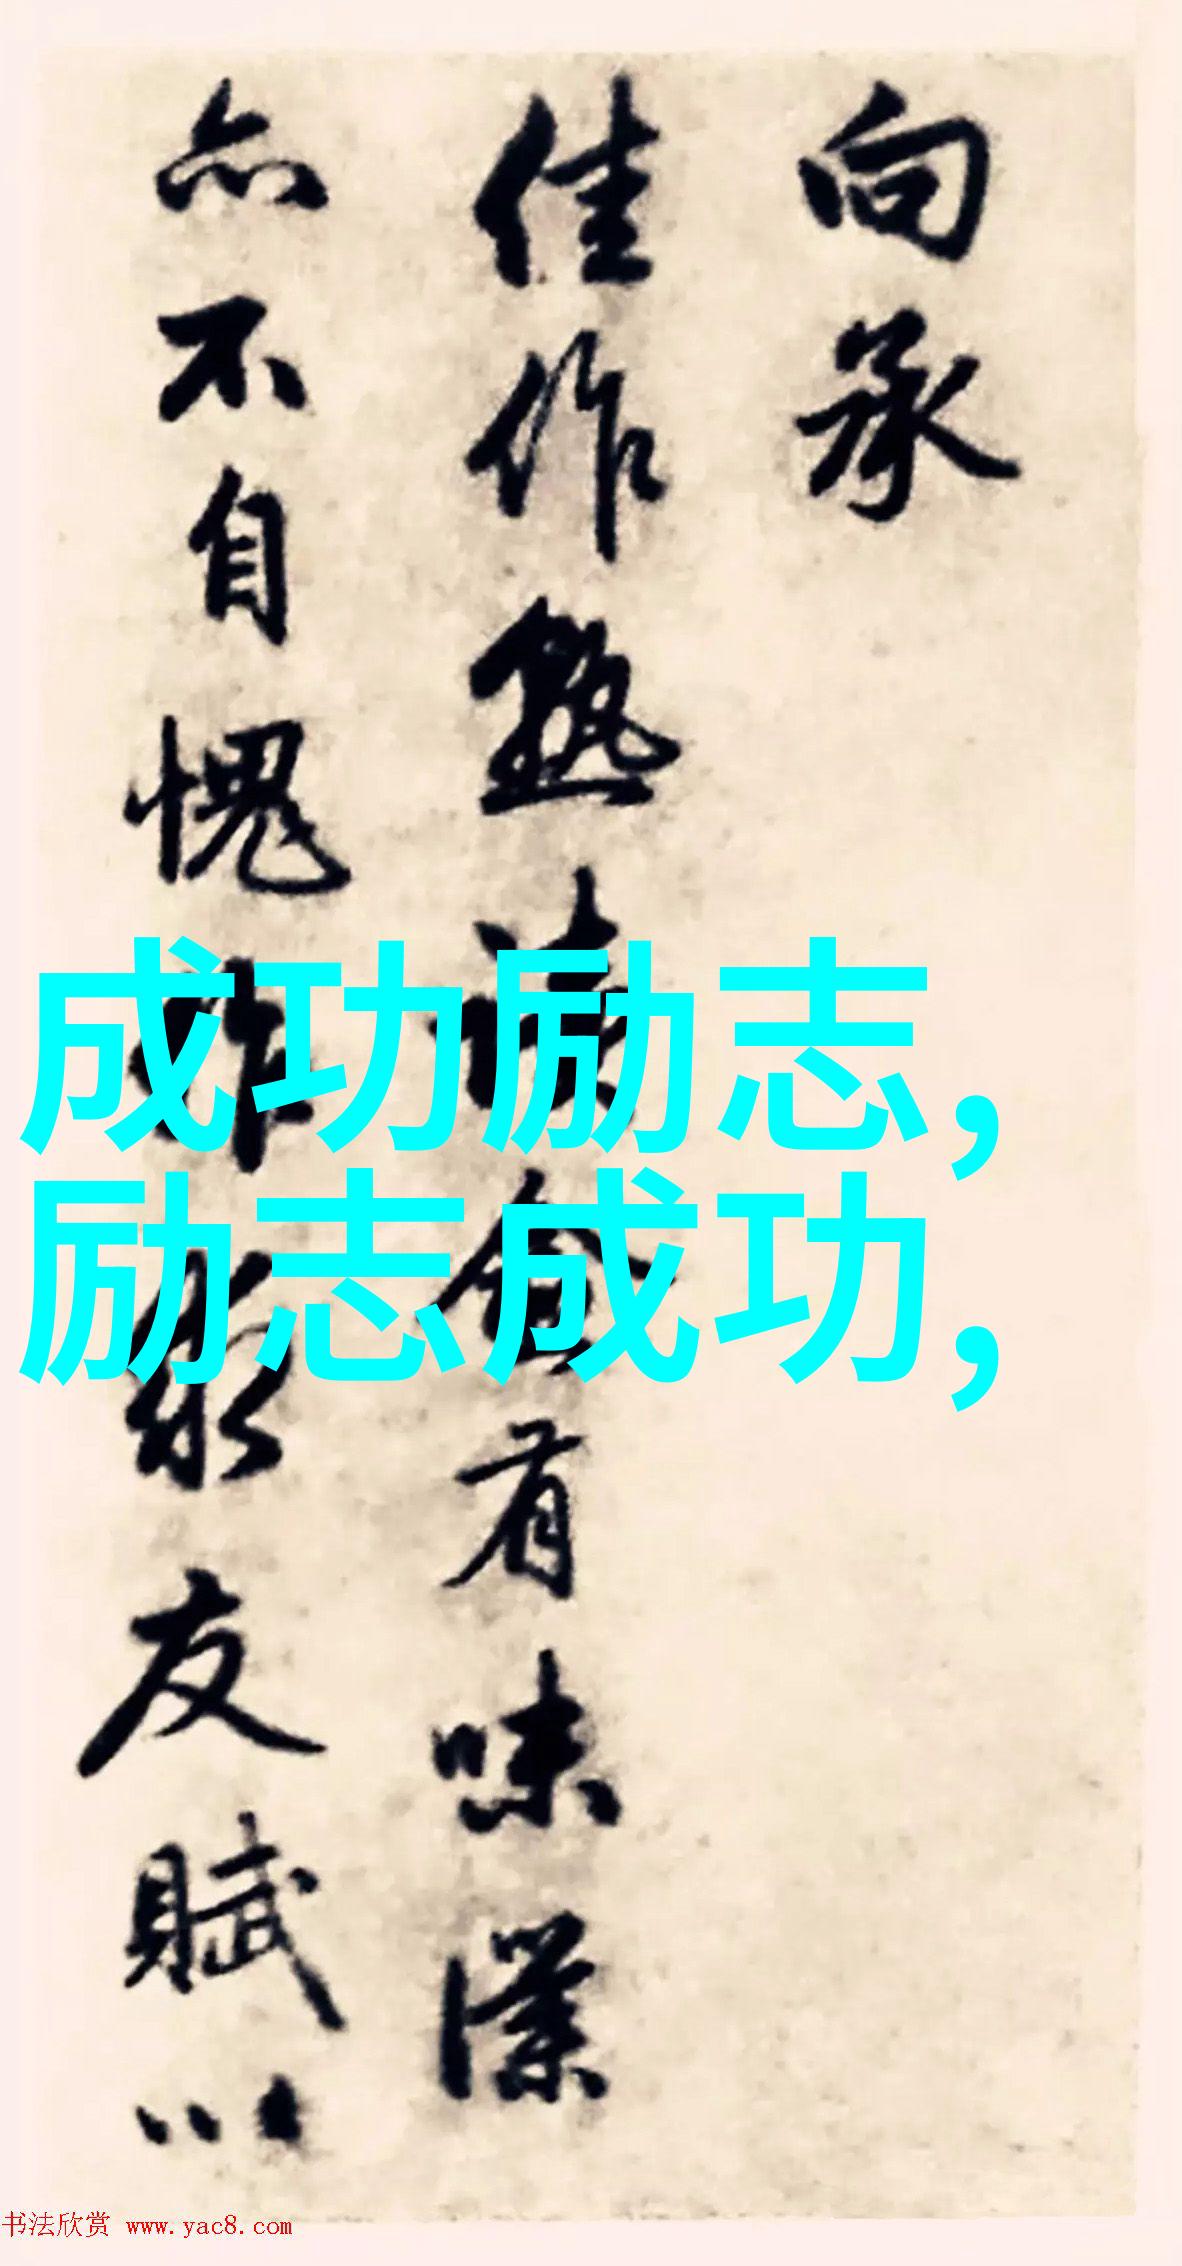 向承
佳作熟有味僕
亦不自愧友賦以
成功励志,
励志成功,
书法欣赏 www.yac8.com